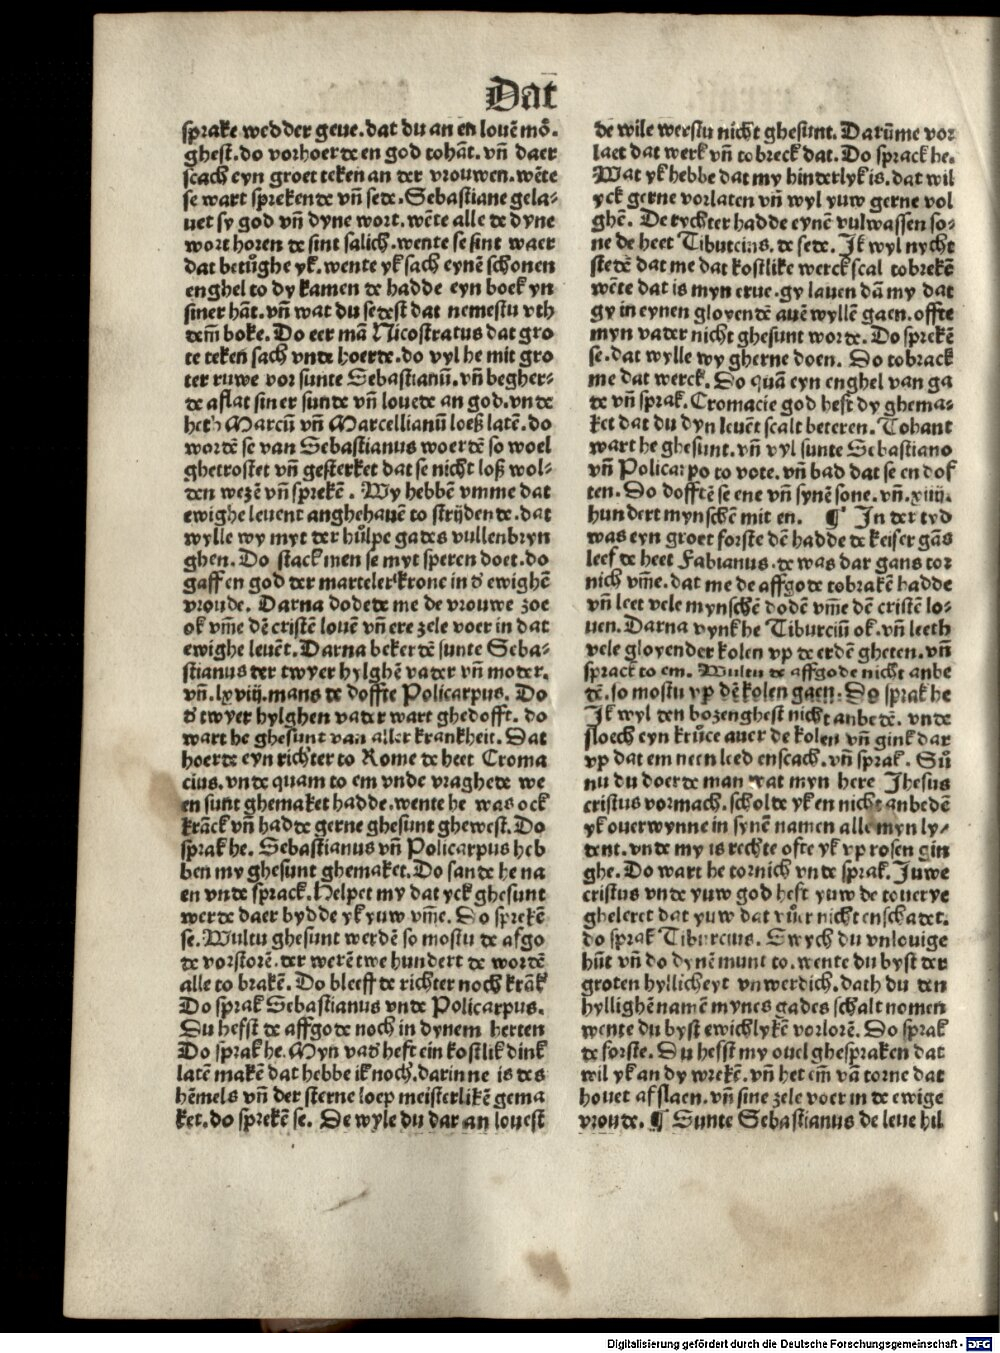 Dat
sprake wedder geue. dat du an en louē mō.
ghest. do vorhoerde en god tohāt. vn̄ daer
scach eyn groet teken an der vrouwen. wēte
se wart sprekende vn̄ sede. Sebastiane gela-
uet sy god vn̄ dyne wort. wēte alle de dyne
wort horen de sint salich. wente se sint waer
dat betůghe yk. wente yk sach eynē schonen
enghel to dy kamen de hadde eyn boek yn
siner hāt. vn̄ wat du sedest dat nemestu vth
dem̄ boke. Do eer mā Nicostratus dat gro
te teken sach vnde hoerde. do vyl he mit gro
ter ruwe vor sunte Sebastianū. vn̄ begher-
de aflat siner sunde vn̄ louede an god. vnde
heth Marcū vn̄ Marcellianū loeß latē. do
wordē se van Sebastianus woerdē so woel
ghetrostet vn̄ gesterket dat se nicht loß wol-
den wezē vn̄ sprekē. Wy hebbē vmme dat
ewighe leuent anghehauē to strijdende. dat
wylle wy myt der hůlpe gades vullenbryn
ghen. Do stack men se myt speren doet. do
gaff en god der marteler krone in d' ewighē
vroude. Darna dodede me de vrouwe zoe
ok vm̄e dē cristē louē vn̄ ere zele voer in dat
ewighe leuēt. Darna bekerdē sunte Seba-
stianus der twyer hylghē vader vn̄ moder.
vn̄. lxviij. mans de doffte Policarpus. Do
d' twyer hylghen vader wart ghedofft. do
wart he ghesunt van aller krankheit. Dat
hoerde eyn richter to Rome de heet Croma
cius. vnde quam to em vnde vraghede we
en sunt ghemaket hadde. wente he was ock
krāck vn̄ hadde gerne ghesunt ghewest. Do
sprak he. Sebastianus vn̄ Policarpus heb
ben my ghesunt ghemaket. Do sande he na
en vnde sprack. Helpet my dat yck ghesunt
werde daer bydde yk yuw vm̄e. Do sprekē
se. Wultu ghesunt werdē so mostu de afgo
de vorstorē. der werē twe hundert de wordē
alle to brakē. Do bleeff de richter noch krāk
Do sprak Sebastianus vnde Policarpus.
Du hefst de affgode noch in dynem herten
Do sprak he. Myn vad' heft ein kostlik dink
latē makē dat hebbe ik noch. darinne is des
hēmels vn̄ der sterne loep meisterlikē gema
ket. do sprekē se. De wyle du dar an louest
de wile werstu nicht ghesunt. Darūme vor
laet dat werk vn̄ tobreck dat. Do sprack he.
Wat yk hebbe dat my hinderlyk is. dat wil
yck gerne vorlaten vn̄ wyl yuw gerne vol
ghē. De rychter hadde eynē vulwassen so-
ne de heet Tiburcius. de sede. Ik wyl nycht
stedē dat me dat kostlike werck scal tobrekē
wēte dat is myn erue. gy lauen dā my dat
gy in eynen gloyendē auē wyllē gaen. offte
myn vader nicht ghesunt worde. Do sprekē
se. dat wylle wy gherne doen. Do tobrack
me dat werck. Do quā eyn enghel van ga
de vn̄ sprak. Cromacie god heft dy ghema-
ket dat du dyn leuēt scalt beteren. Tohant
wart he ghesunt. vn̄ vyl sunte Sebastiano
vn̄ Policarpo to vote. vn̄ bad dat se en dof
ten. Do dofftē se ene vn̄ synē sone. vn̄. xiiij.
hundert mynschē mit en. ¶ In der tyd
was eyn groet forste dē hadde de keiser gās
leef de heet Fabianus. de was dar gans tor
nich vm̄e. dat me de affgode tobrakē hadde
vn̄ leet vele mynschē dodē vm̄e dē cristē lo-
uen. Darna vynk he Tiburciū ok. vn̄ leeth
vele gloyender kolen vp de erdē gheten. vn̄
sprack to em. Wultu de affgode nicht anbe
dē. so mostu vp dē kolen gaen. Do sprak he
Ik wyl den bozen ghest nicht anbedē. vnde
sloech eyn krůce auer de kolen vn̄ gink dar
vp dat em neen leed enscach. vn̄ sprak. Sů
nu du doerde man wat myn here Jhesus
cristus vormach. scholde yk en nicht anbedē
yk ouerwynne in synē namen alle myn ly-
dent. vnde my is rechte ofte yk vp rosen gin
ghe. Do wart he tornich vnde sprak. Juwe
cristus vnde yuw god heft yuw de touerye
gheleret dat yuw dat vůer nicht enschadet.
do sprak Tiburcius. Swych du vnlouige
hūt vn̄ do dynē munt to. wente du byst der
groten hyllicheyt vnwerdich. dath du den
hyllighē namē mynes gades schalt nomen
wente du byst ewichlykē vorlorē. Do sprak
de forste. Du hefst my ouel ghespraken dat
wil yk an dy wrekē. vn̄ het em̄ vā torne dat
houet afslaen. vn̄ sine zele voer in de ewige
vroude. ¶ Sunte Sebastianus de leue hil
Digitalisierung gefördert durch die Deutsche Forschungsgemeinschaft - DFG